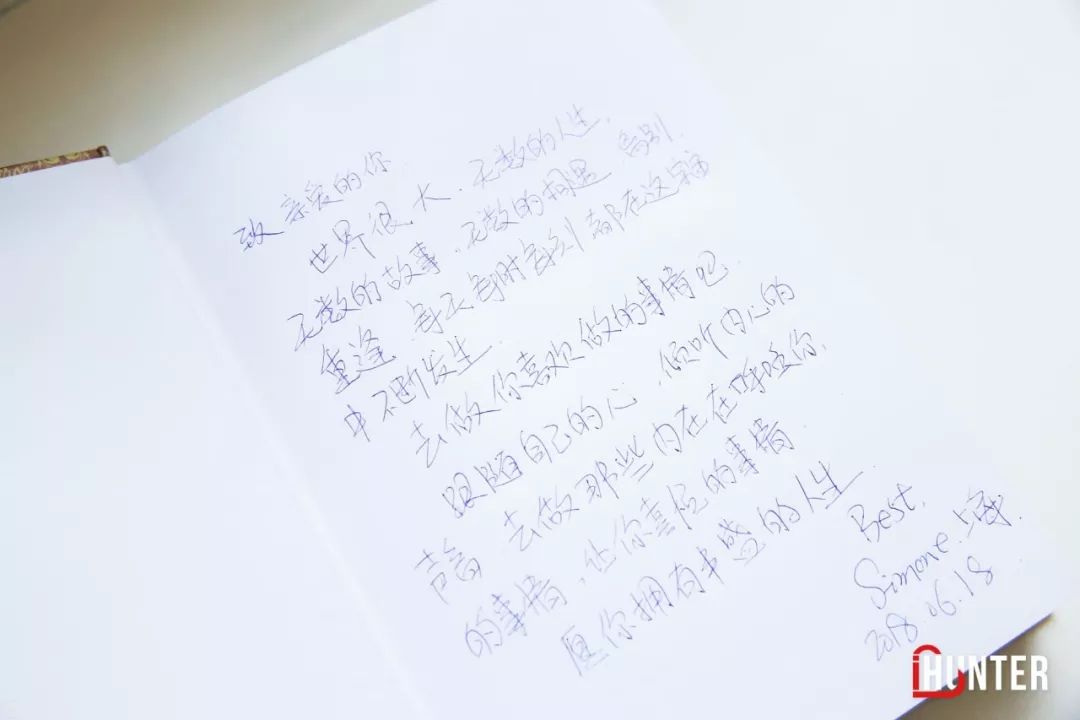 致 亲爱的你
世界很大，无数的人生，
无数的故事，无数的相遇 离别
重逢 每天每时每刻都在这宇宙
中不断发生
去做你喜欢做的事情吧
跟随自己的心，倾听内心的
声音 去做那些内在在呼唤你
的事情，让你喜悦的事情
愿你拥有丰盛的人生
Best,
Simone.上海.
2018.06.18
HUNTER